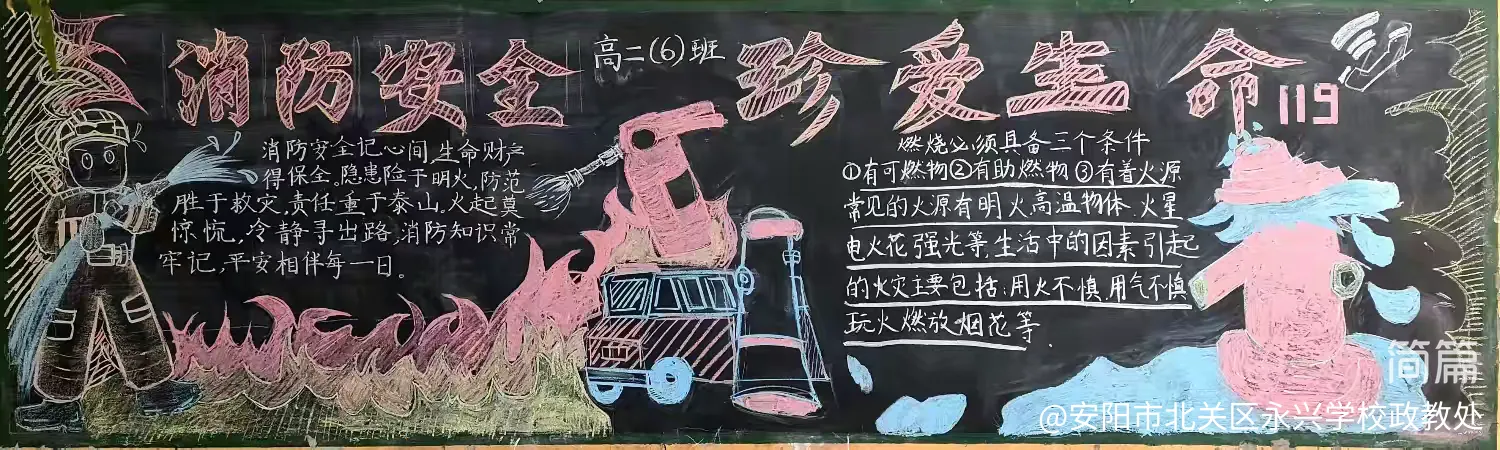 消防安全
高二(6)班
珍爱生命
119
消防安全记心间,生命财产
得保全。隐患险于明火,防范
胜于救灾,责任重于泰山。火起莫
惊慌,冷静寻出路,消防知识常
牢记,平安相伴每一日。
燃烧必须具备三个条件
①有可燃物②有助燃物③有着火源
常见的火源有明火、高温物体、火星
电火花、强光等,生活中的因素引起
的火灾主要包括:用火不慎,用气不慎
玩火燃放烟花等.
简篇
@安阳市北关区永兴学校政教处